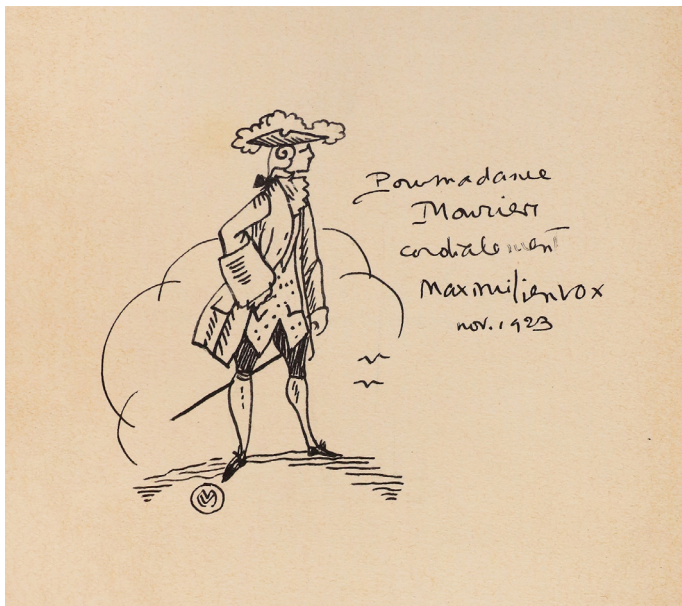 Pour madame
Mourier
cordialement
Maximilien vox
nov. 1923